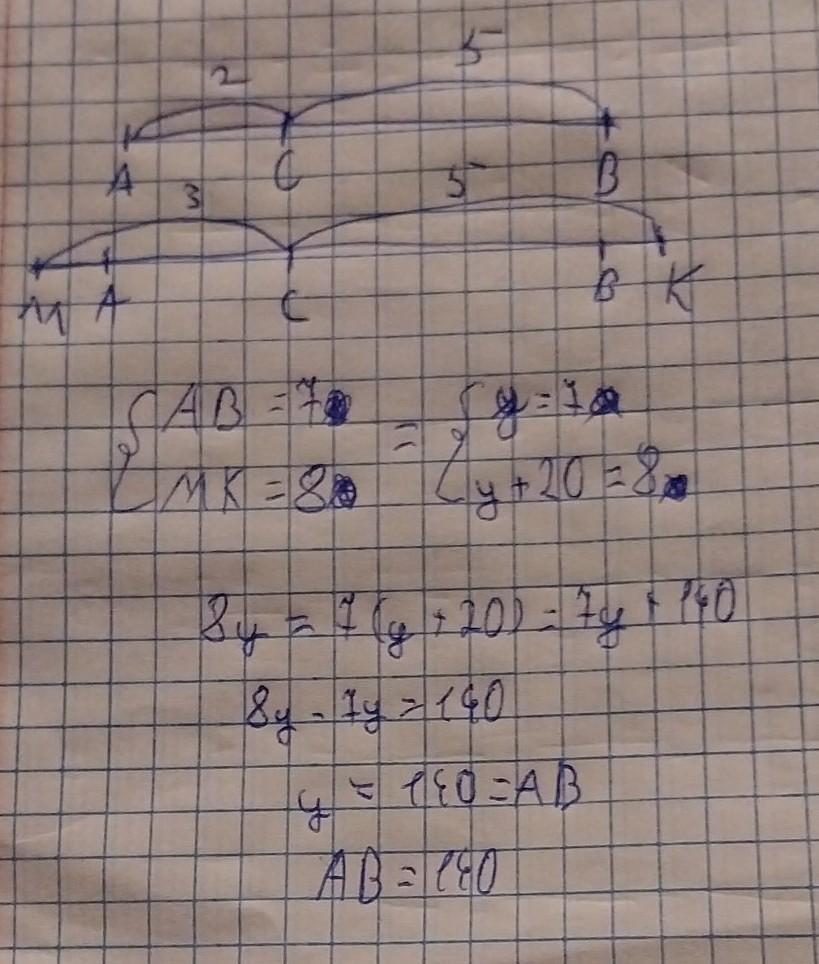 2 5
A C B
3 5
M A C B K
{ AB = 7 = { y = 7
{ MK = 8 { y + 20 = 8
8y = 7(y + 20) = 7y + 140
8y - 7y = 140
y = 140 = AB
AB = 140